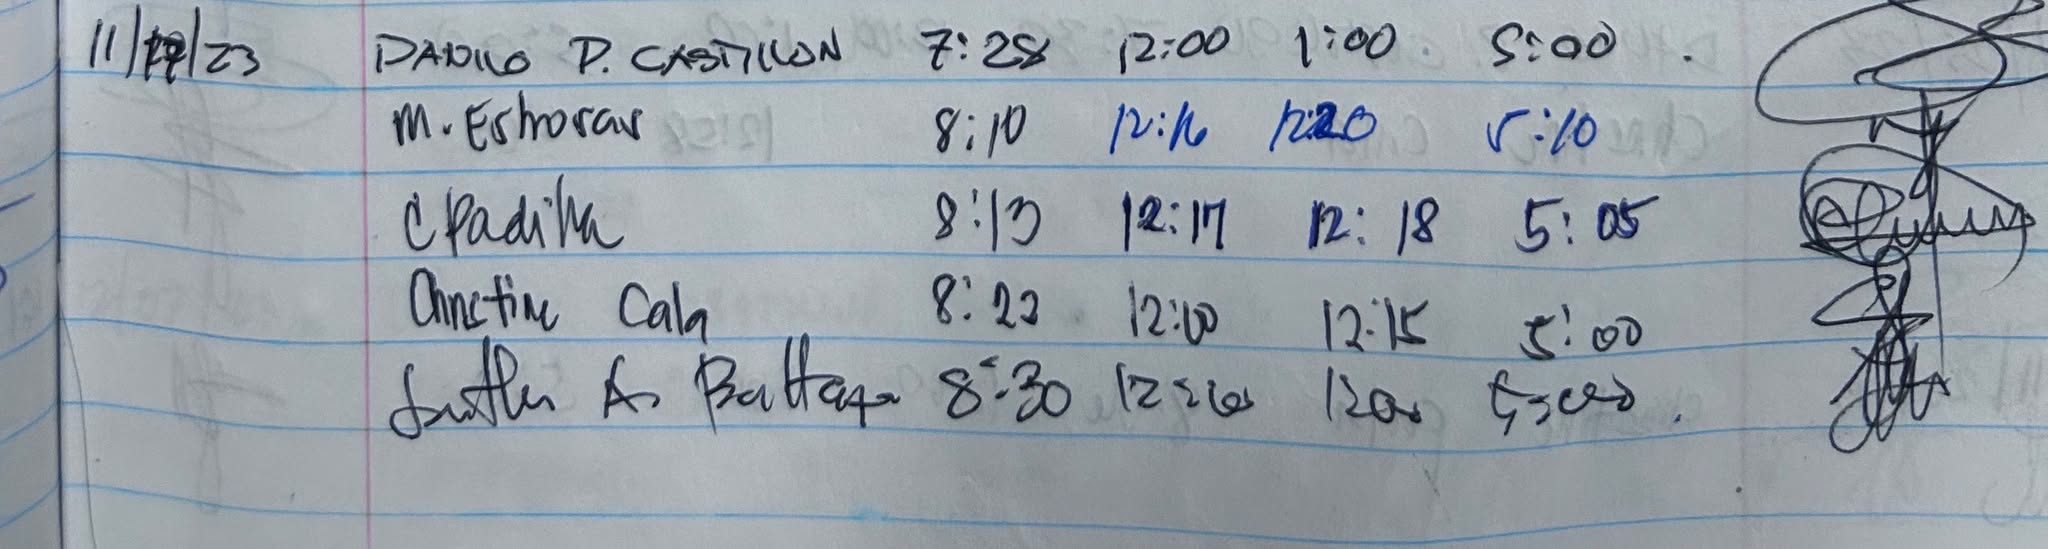 11/ /23 DANILO P. CASTILLON 7:28 12:00 1:00 5:00
M. Estrosas 8:10 12:16 12:20 5:10
C Padilla 8:13 12:17 12:18 5:05
Christine Cala 8:23 12:10 12:15 5:00
A. 8:30